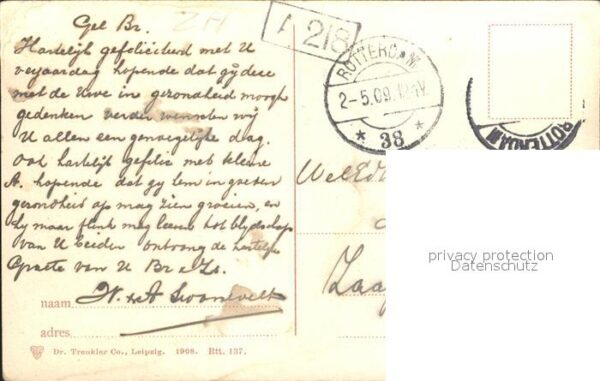 Gel Br.
Hartelijk gefeliciteerd met U
verjaardag hopende dat gij deze
met de Uwe in gezondheid moogt
gedenken verder wenschen wij
U allen een genoegelijke dag.
Ook hartelijk gefelic met kleine
A. hopende dat gij hem in
gezondheid op mag zien groeien, en
hij maar flink mag leeren tot blijdschap
van U beiden ontvang de hartelijke
Groete van U Br & Zs.
naam
adres
Dr. Trenkler Co., Leipzig. 1908. Rtt. 137.
A 218
ROTTERDAM
2-5.09. 12-1V
* 38 *
ROTTERDAM
WelEd
Zaa
privacy protection
Datenschutz